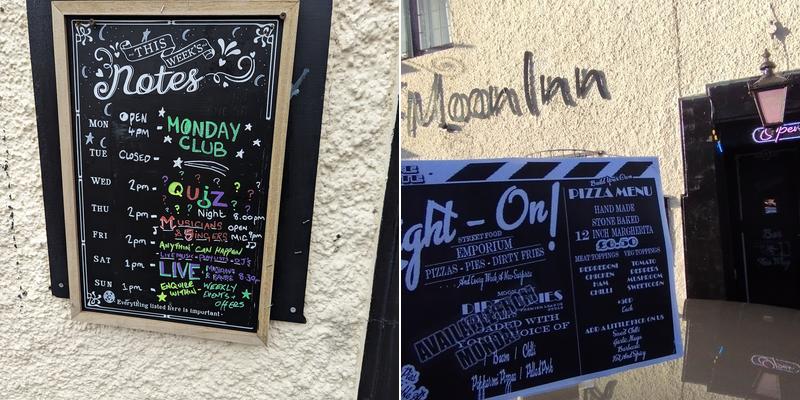 THIS
WEEK'S
Notes
MON OPEN 4PM - MONDAY CLUB
TUE CLOSED -
WED 2pm - QUIZ
THU 2pm - Night 8.00pm
MUSICIANS OPEN
FRI 2pm - & SINGERS MIC
ANYTHIN' CAN HAPPEN
SAT 1pm - LIVE MUSIC
LIVE 8.30
SUN 1pm - ENQUIRE WITHIN - WEEKLY EVENTS + OFFERS
Everything listed here is important
Moon Inn
Open
ght - On!
STREET FOOD
EMPORIUM
PIZZAS - PIES - DIRTY FRIES
And Every Week A New Surprise
DIRTY FRIES
LOADED WITH CHOICE OF
AVAILABLE
MONDAY
Bacon / Chilli
Pepperoni Pizza / Pulled Pork
Build Your Own
PIZZA MENU
HAND MADE
STONE BAKED
12 INCH MARGHERITA
£6.50
MEAT TOPPINGS VEG TOPPINGS
PEPPERONI TOMATO
CHICKEN PEPPERS
HAM MUSHROOM
CHILLI SWEETCORN
+50p
Each
ADD A LITTLE KICK ON US
Sweet Chilli
Garlic Mayo
Barbecue
Hot And Spicy